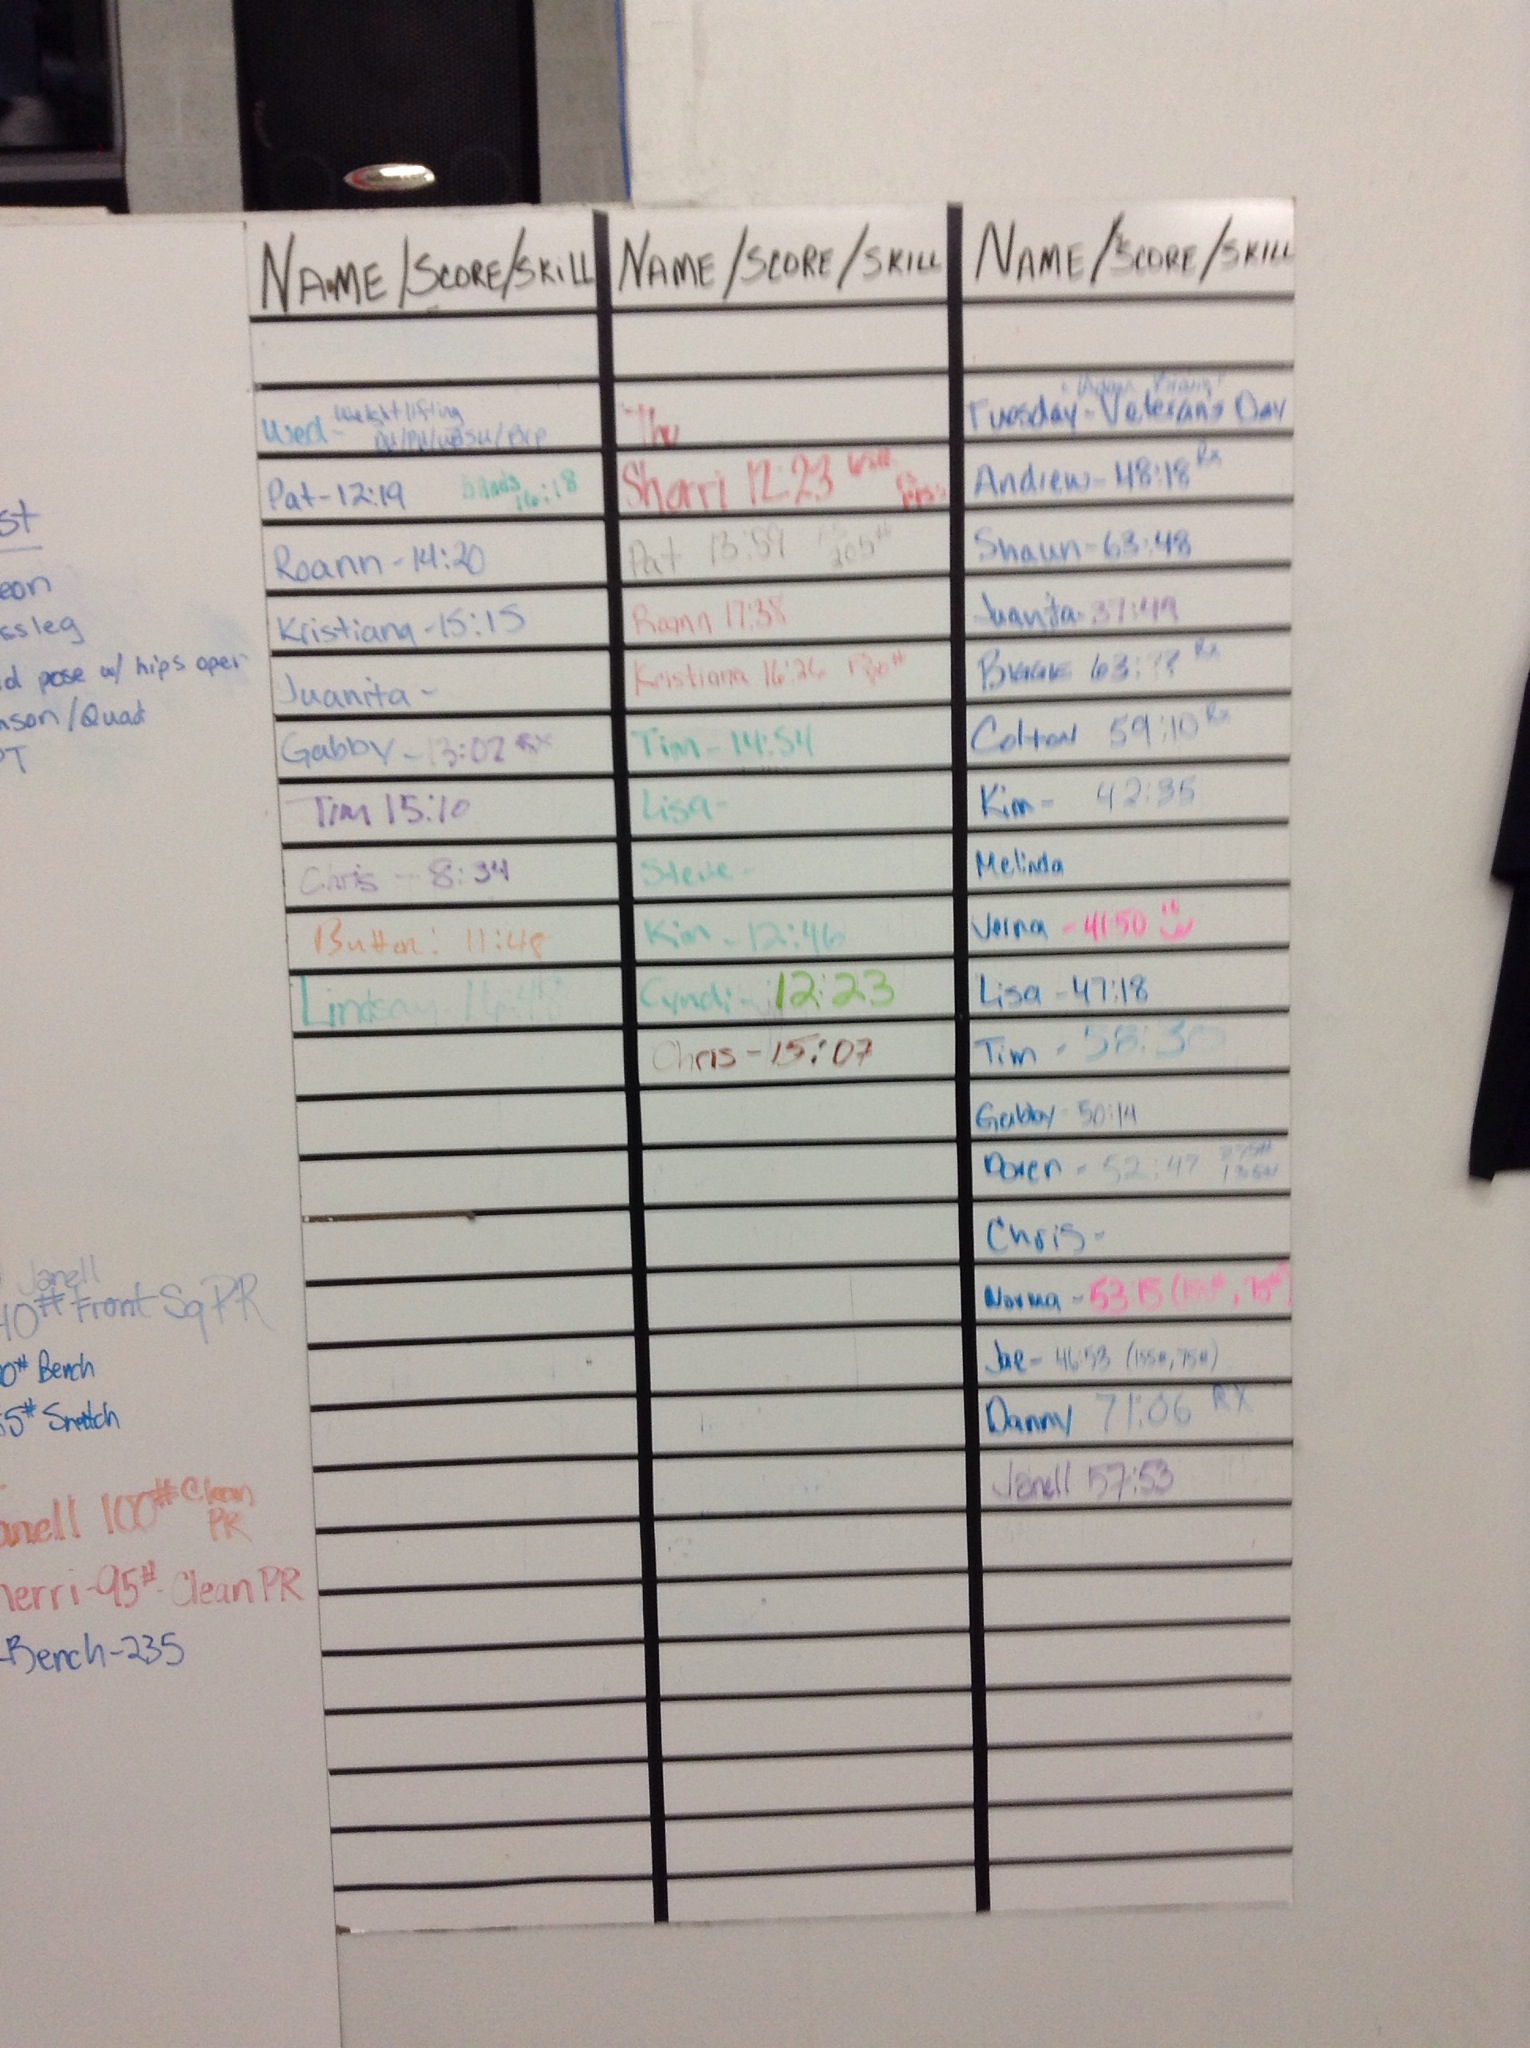 st
eon
ss leg
d pose w/ hips open
nson/Quad
PT
Janell
40# Front Sq PR
0# Bench
5# Snatch
anell 100# Clean PR
herri-95# Clean PR
-Bench-235
NAME/SCORE/SKILL
Wed- Weightlifting
Pat-12:19 16:18
Roann-14:20
Kristiana-15:15
Juanita-
Gabby-13:02 RX
Tim 15:10
Chris - 8:34
Button: 11:48
Lindsay
NAME/SCORE/SKILL
Thu
Sherri 12:23
Pat 13:59 205#
Roann 17:38
Kristiana 16:26
Tim-14:54
Lisa-
Steve-
Kim-12:46
Cyndi- 12:23
Chris-15:07
NAME/SCORE/SKILL
Tuesday-Veterans Day
Andrew-48:18 Rx
Shaun-63:48
Juanita-37:49
63:?? Rx
Colton 59:10 Rx
Kim- 42:35
Melinda
Verna-41:50
Lisa-47:18
Tim - 58:30
Gabby-50:14
52:47
Chris-
Norma-53:15 (155#, 75#)
Joe-46:53 (155#, 75#)
Danny 71:06 RX
Janell 57:53